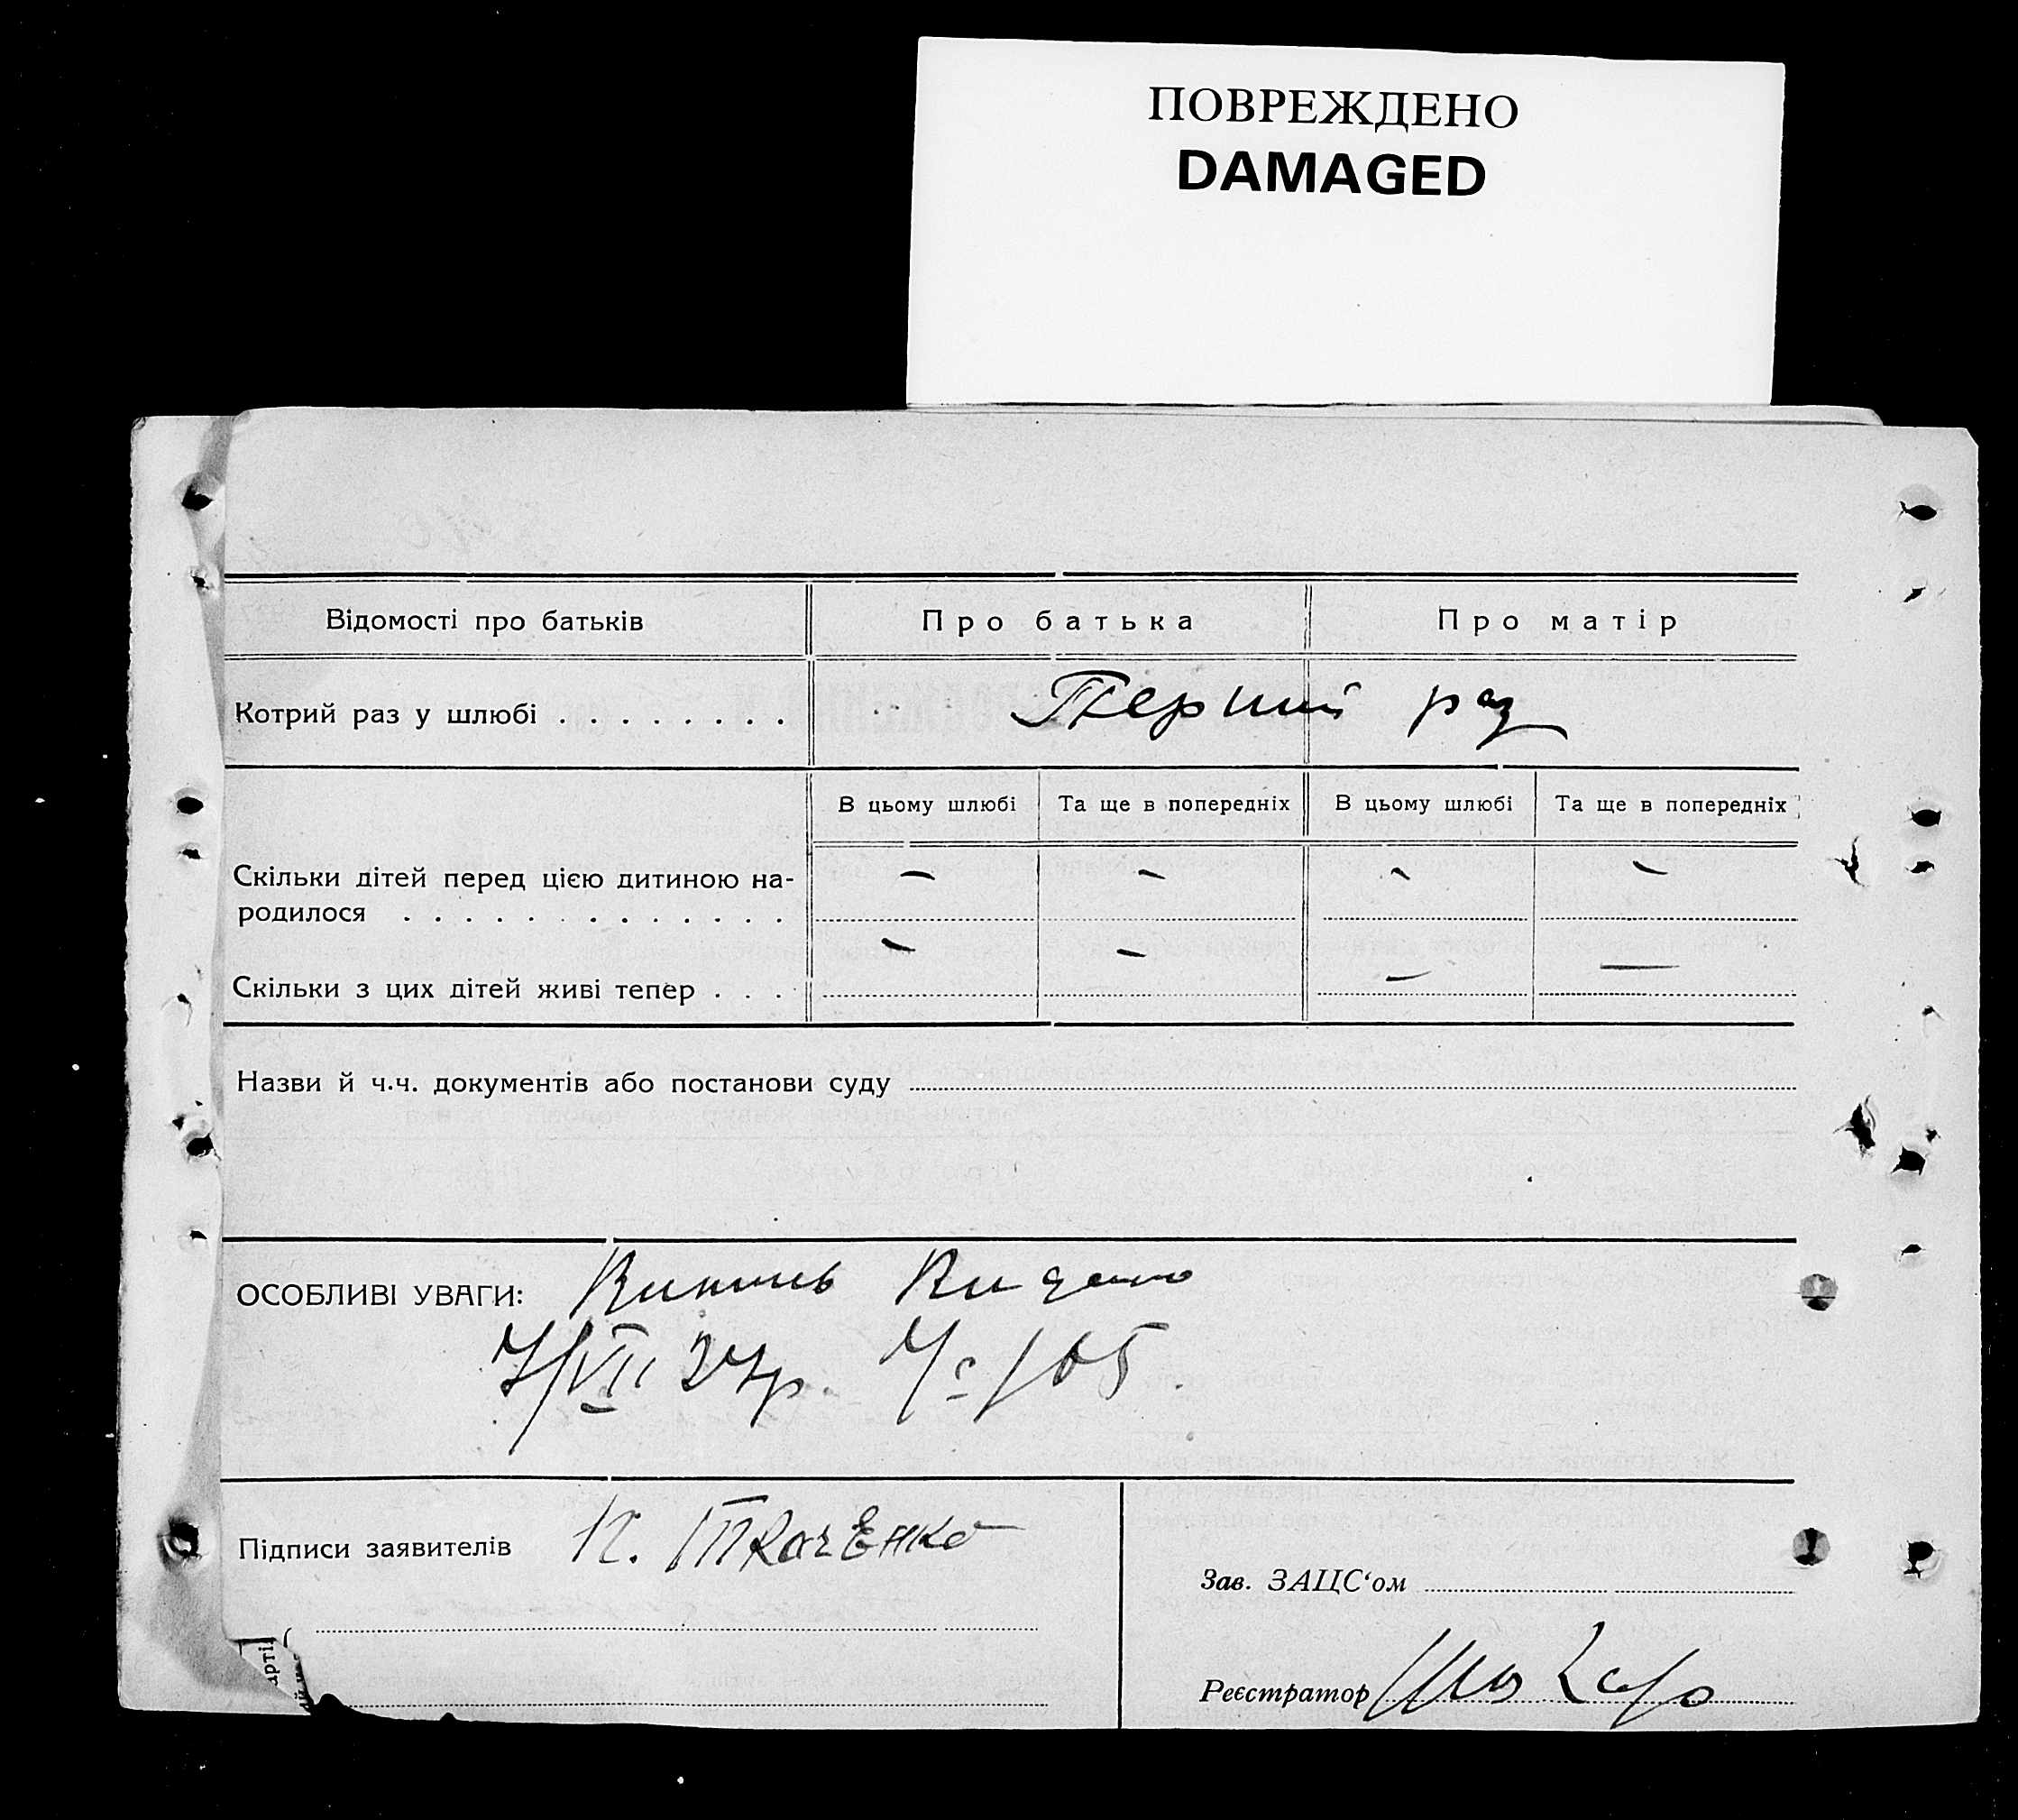 ПОВРЕЖДЕНО
DAMAGED
Відомості про батьків Про батька Про матір
Котрий раз у шлюбі . . . . . . . . Перший раз
В цьому шлюбі Та ще в попередніх В цьому шлюбі Та ще в попередніх
Скільки дітей перед цією дитиною на- — — — —
родилося . . . . . . . . . . . . .
Скільки з цих дітей живі тепер . . . — — — —
Назви й ч.ч. документів або постанови суду
ОСОБЛИВІ УВАГИ: Видано
7/VII 27р.
Підписи заявителів К. Ткаченко
Зав. ЗАЦС‘ом
Реєстратор